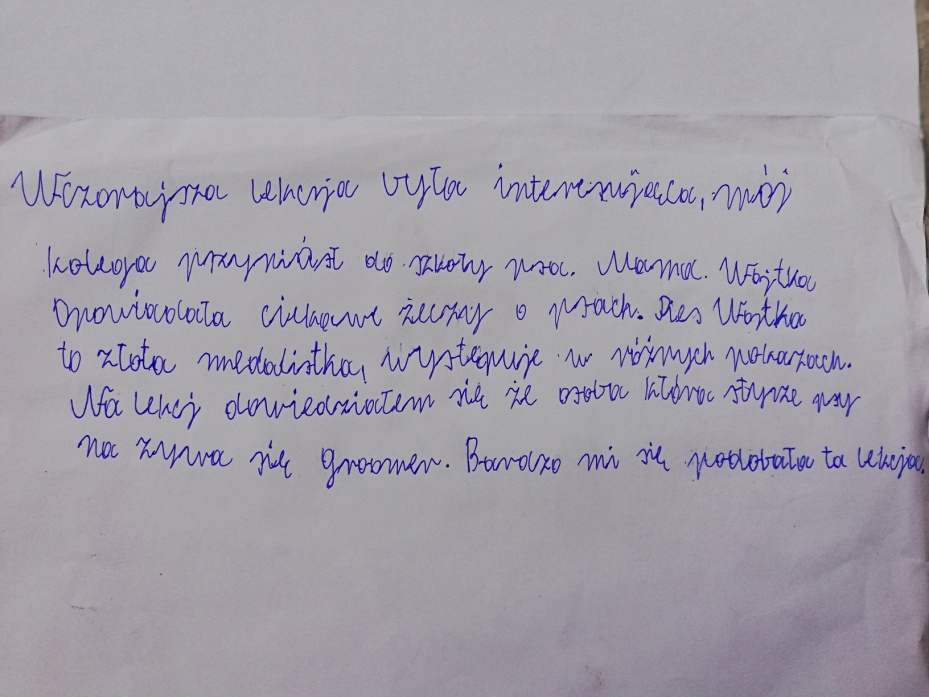 Wczorajsza lekcja była interesująca, mój
kolega przyniósł do szkoły psa. Mama. Wojtka
Opowiadała ciekawe żeczy o psach. Pies Wojtka
to złota medalistka, występuje w różnych pokazach.
Na lekcj dowiedziałem się że osoba która stryże psy
na zywa się groomer. Bardzo mi się podobała ta lekcja.